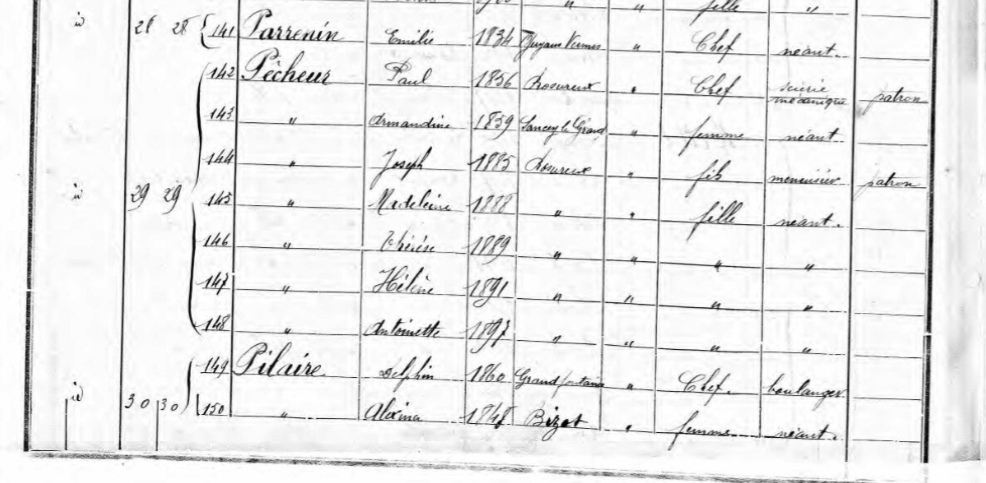 " " fille "
id 28 28 141 Parrenin Emilie 1834 " Chef néant.
142 Pêcheur Paul 1856 Rosureux " Chef scierie mécanique patron
143 " Armandine 1859 Sancey le Grand " femme néant
144 " Joseph 1885 Rosureux " fils menuisier patron
id 29 29 145 " Madeleine 1888 " " fille néant.
146 " Thérèse 1889 " " " "
147 " Hélène 1891 " " " "
148 " Antoinette 1897 " " " "
149 Pilaire Delphin 1860 Grandfontaine " Chef boulanger
id 30 30 150 " Alexina 1847 Bizot " femme néant.